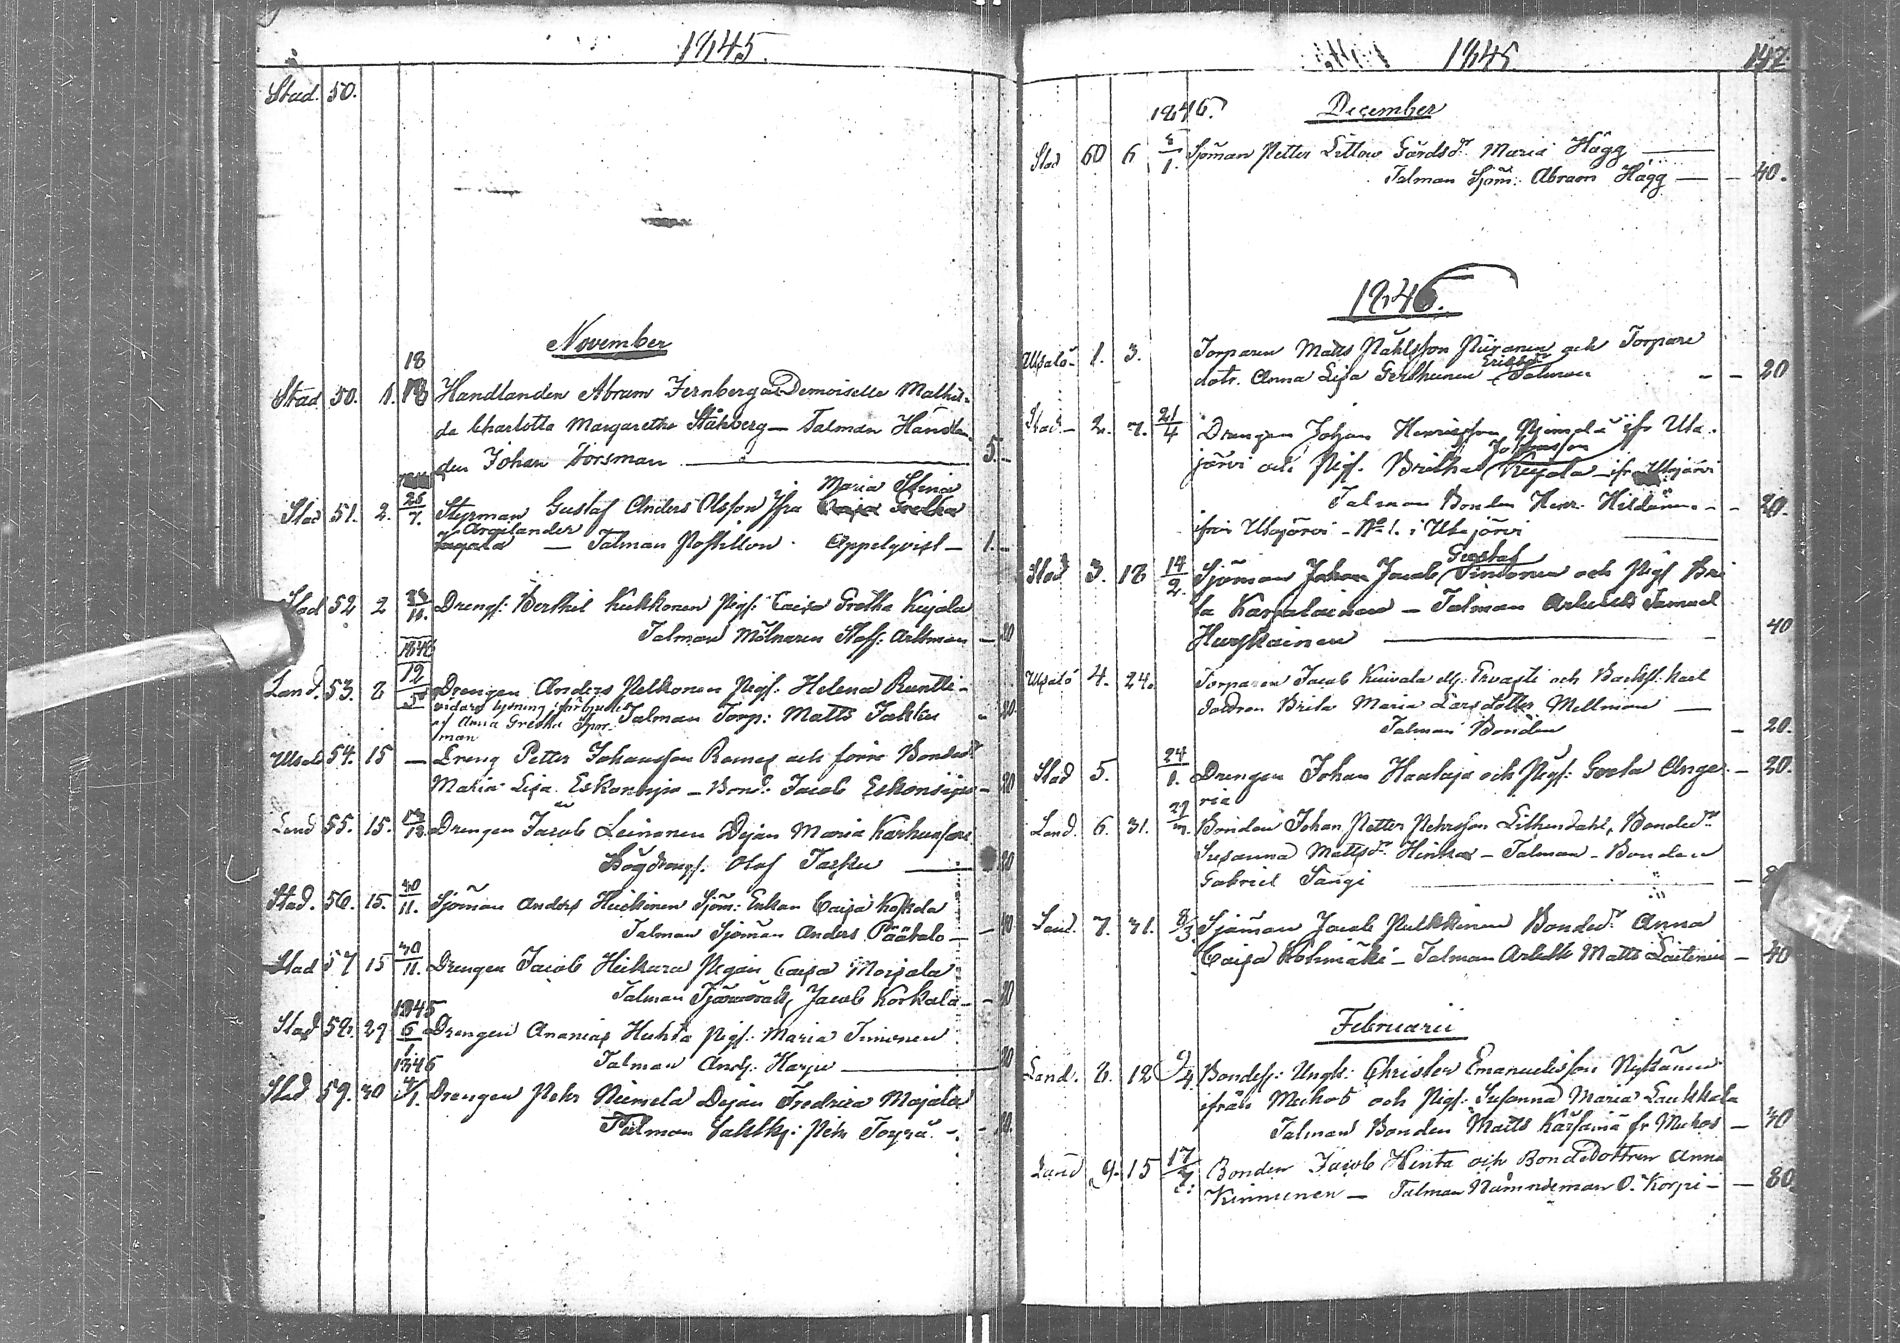 1845.
Stad. 50.
November
18
Stad 50. 1. 18 Handlanden Abram Fernberg och Demoiselle Mathil-
da Charlotta Margaretha Ståhlberg — Talman Handlan-
den Johan Forsman — 5.—
Maria Stina
Stad 51. 2. 25/7. Styrman Gustaf Anders Olsson Jfru Caisa Gretha
Talman Postillon Appelqvist — 1.—
Stad 52 2 /11. Drengs: Berthil Kukkonen Pigs: Caisa Gretha Kujala
Talman Mölnaren Staff: Arkman — 20
1846
Land. 53. 8 12/5 Drengen Anders Pelkonen Pigs: Helena Runtti-
vidare lysning
af Anna Gretha Talman Torp: Matts Jakku - 20
man
54. 15 — Dreng Petter Johansson Ramas och förre Bonded:
Maria Lisa Eskonsipo — Bond: Jacob Eskonsipo - 20
Land 55. 15. /12. Drengen Jacob Leinonen Dejan Maria Karhu
Olof Jaspu — 20
Stad. 56. 15. 30/11. Sjöman Anders Heickinen Sjöm: Enkan Caisa Koskela
Talman Sjöman Anders Päätalo — 40
Stad 57 15 30/11. Drengen Jacob Heikura Pigan Caisa Moisala
Talman Jacob Korkala — 20
1845
Stad 58. 29 6/1 Drengen Ananias Huhta Pigs: Maria Timonen
1846
Talman And: Harju — 20
Stad 59. 30 /1. Drengen Pehr Niemela Dejan Fredrica Majala
Talman Pehr - 20.
1845 147.
1846. December
Stad 60 6 /1. Sjöman Petter Littow Gårdsd: Maria Hägg —
Talman Sjöm: Abram Hägg — 40.
1846.
Utsalö 1. 3. Torparen Matts Påhlsson Piiranen och Torpare
Ericksdr
dotr. Anna Lisa Gerthunen Talman - - 20
Stad - 2. 7. 21/4 Drengen Johan Henricsson Niemelä ifr Uta-
Johansson
järvi och Pigs. Britha Kujala ifr Utajärvi
Talman Bonden Henr. Hildanen - - 20.
ifrån Utajärvi - No 1. i Utajärvi
Gustaf
Stad 3. 18 14/2. Sjöman Johan Jacob Timonen och Pigs Bri
ta Karjalainen — Talman Arbetsk Samuel
Hurskainen — 40
Utsalö 4. 24. Torparen Jacob Kuivala ell. Ervasti och Backst: karl
dottren Brita Maria Larsdotter Mellman —
Talman Bonden — 20.
Stad 5. 24/1. Drengen Johan Haataja och Pigs: Greta Ange- — 20.
ria
Land. 6. 31. Bonden Johan Petter Pehrsson Lithendahl, Bonded:r
Susanna Mattsdr Hinka — Talman — Bonden
Gabriel Sangi —
Land. 7. 31. 8/3. Sjöman Jacob Pulkkinen Bonded:r Anna
Caisa Kohimäki — Talman Arbetsk Matts Laitinen — 40
Februarii
Land. 8. 12 9/4 Bondes: Ungk: Christer Emanuelsson Nyssönen
ifrån Muhos och Pigs: Susanna Maria Laukkala
Talman Bonden Matts Karsaina fr Muhos — 40
Land 9. 15 17/ Bonden Jacob Hinta och BondeDottren Anna
Kinnunen — Talman Nämndeman O. Korpi — — 80.